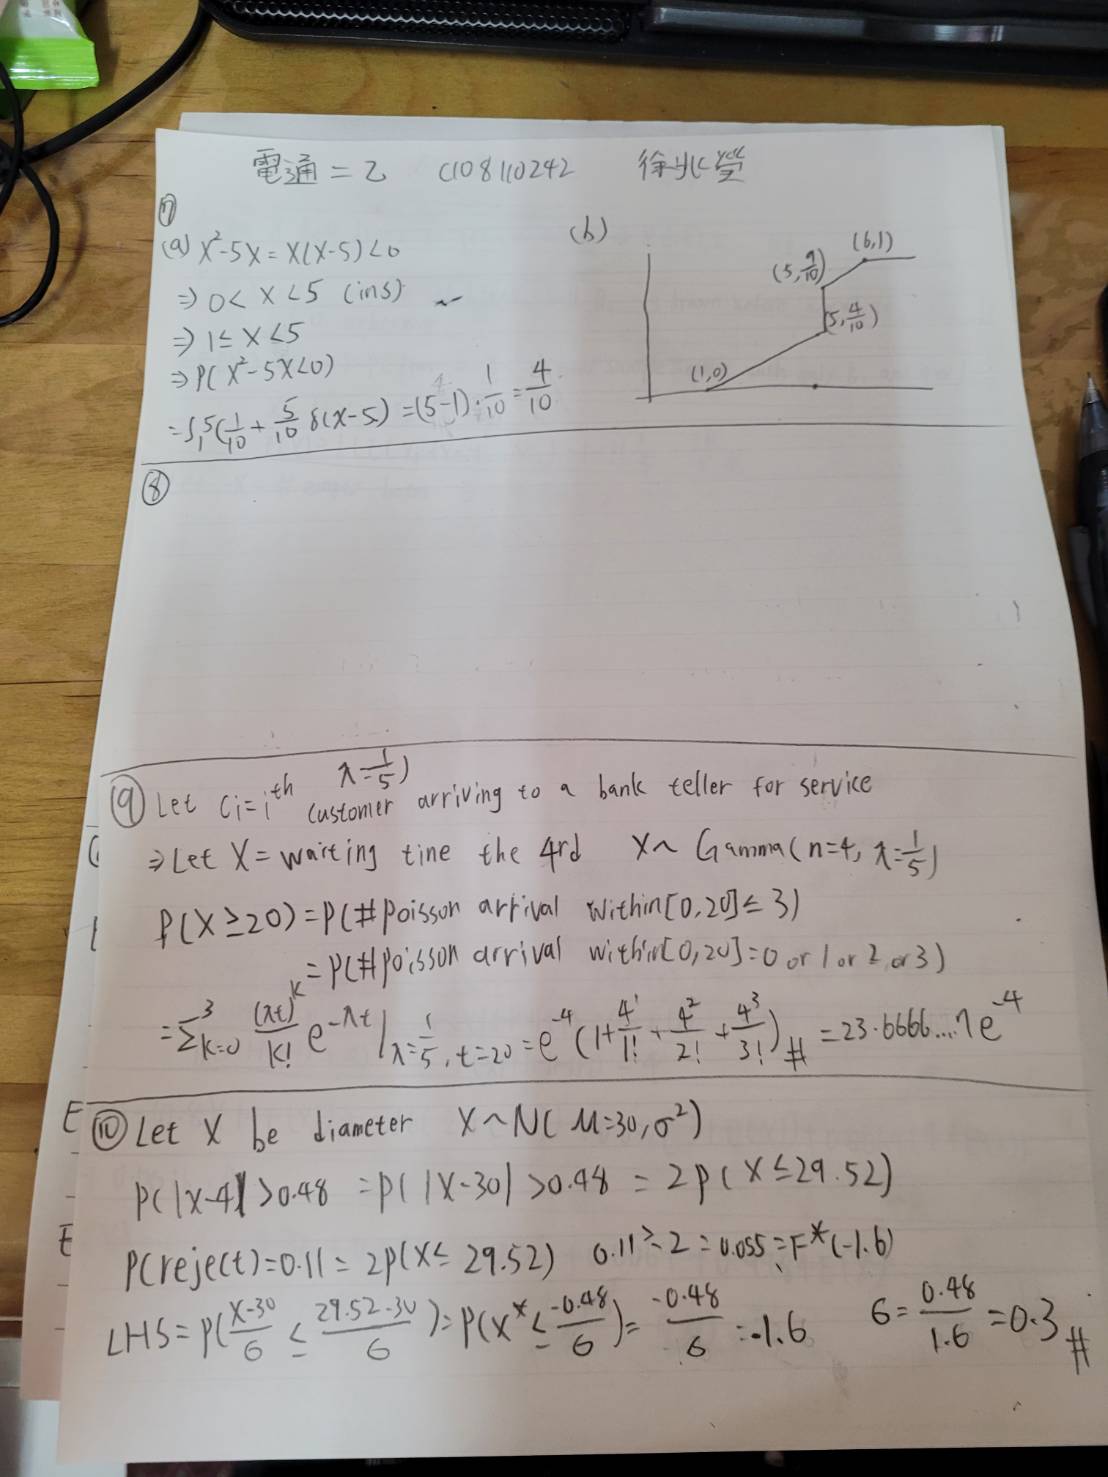 電通二乙 C108110242 徐兆瑩
⑦
(a) X²-5X = X(X-5)<0
⇒ 0< X <5 (ins)
⇒ 1≤ X <5
⇒ P(X²-5X<0)
= ∫₁⁵(1/10 + 5/10 δ(X-5) = (5-1)·1/10 = 4/10
(b)
(6,1)
(5,9/10)
(5,4/10)
(1,0)
⑧
⑨ Let Ci=iᵗʰ customer arriving to a bank teller for service
λ=1/5)
⇒ Let X = waiting tine the 4rd X~Gamma(n=4, λ=1/5)
P(X≥20)=P(#poisson arrival within[0,20]≤3)
=P(#poisson arrival within[0,20]=0 or 1 or 2 or 3)
=Σ³k=0 (λt)ᵏ/k! e^-λt | λ=1/5, t=20 = e^-4 (1+4¹/1!+4²/2!+4³/3!)# = 23.6666...7e^-4
⑩ Let X be diameter X~N(M=30,σ²)
P(|X-4|>0.48 =P(|X-30|>0.48 = 2P(X≤29.52)
P(reject)=0.11= 2P(X≤ 29.52) 0.11÷2=0.055=F*(-1.6)
LHS=P(X-30/6 ≤ 29.52-30/6)=P(X*≤ -0.48/6)= -0.48/6 =-1.6 6= 0.48/1.6 =0.3#